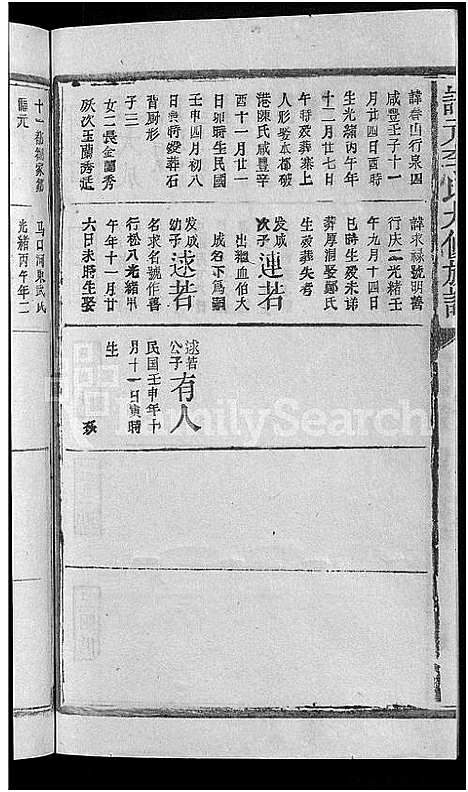 諱春山行泉四
咸豐壬子十一
月廿四日酉時
生光緒丙午年
十二月廿七日
午時歿葬寨上
人形
港陳氏咸豐辛
酉十一月廿一
日卯時生民國
壬申四月初八
日寅時歿葬石
背厨形
子三
女二長金蘭秀
次玉蘭秀适
諱求祿號明善
行庆二光緒壬
午年九月十四日
巳時生歿未详
葬厚洞娶鄒氏
生歿葬失考
发咸
次子 連若
出繼血伯大
成名下爲嗣
发咸
幼子 逑若
名求名號作善
行松八光緒甲
午年十一月廿
六日未時生娶
逑若
公子 有人
民国壬申年十
月十一日寅時
生
十一都
馬口洞東武氏
光緒丙午年二
氏大修族譜
FamilySearch